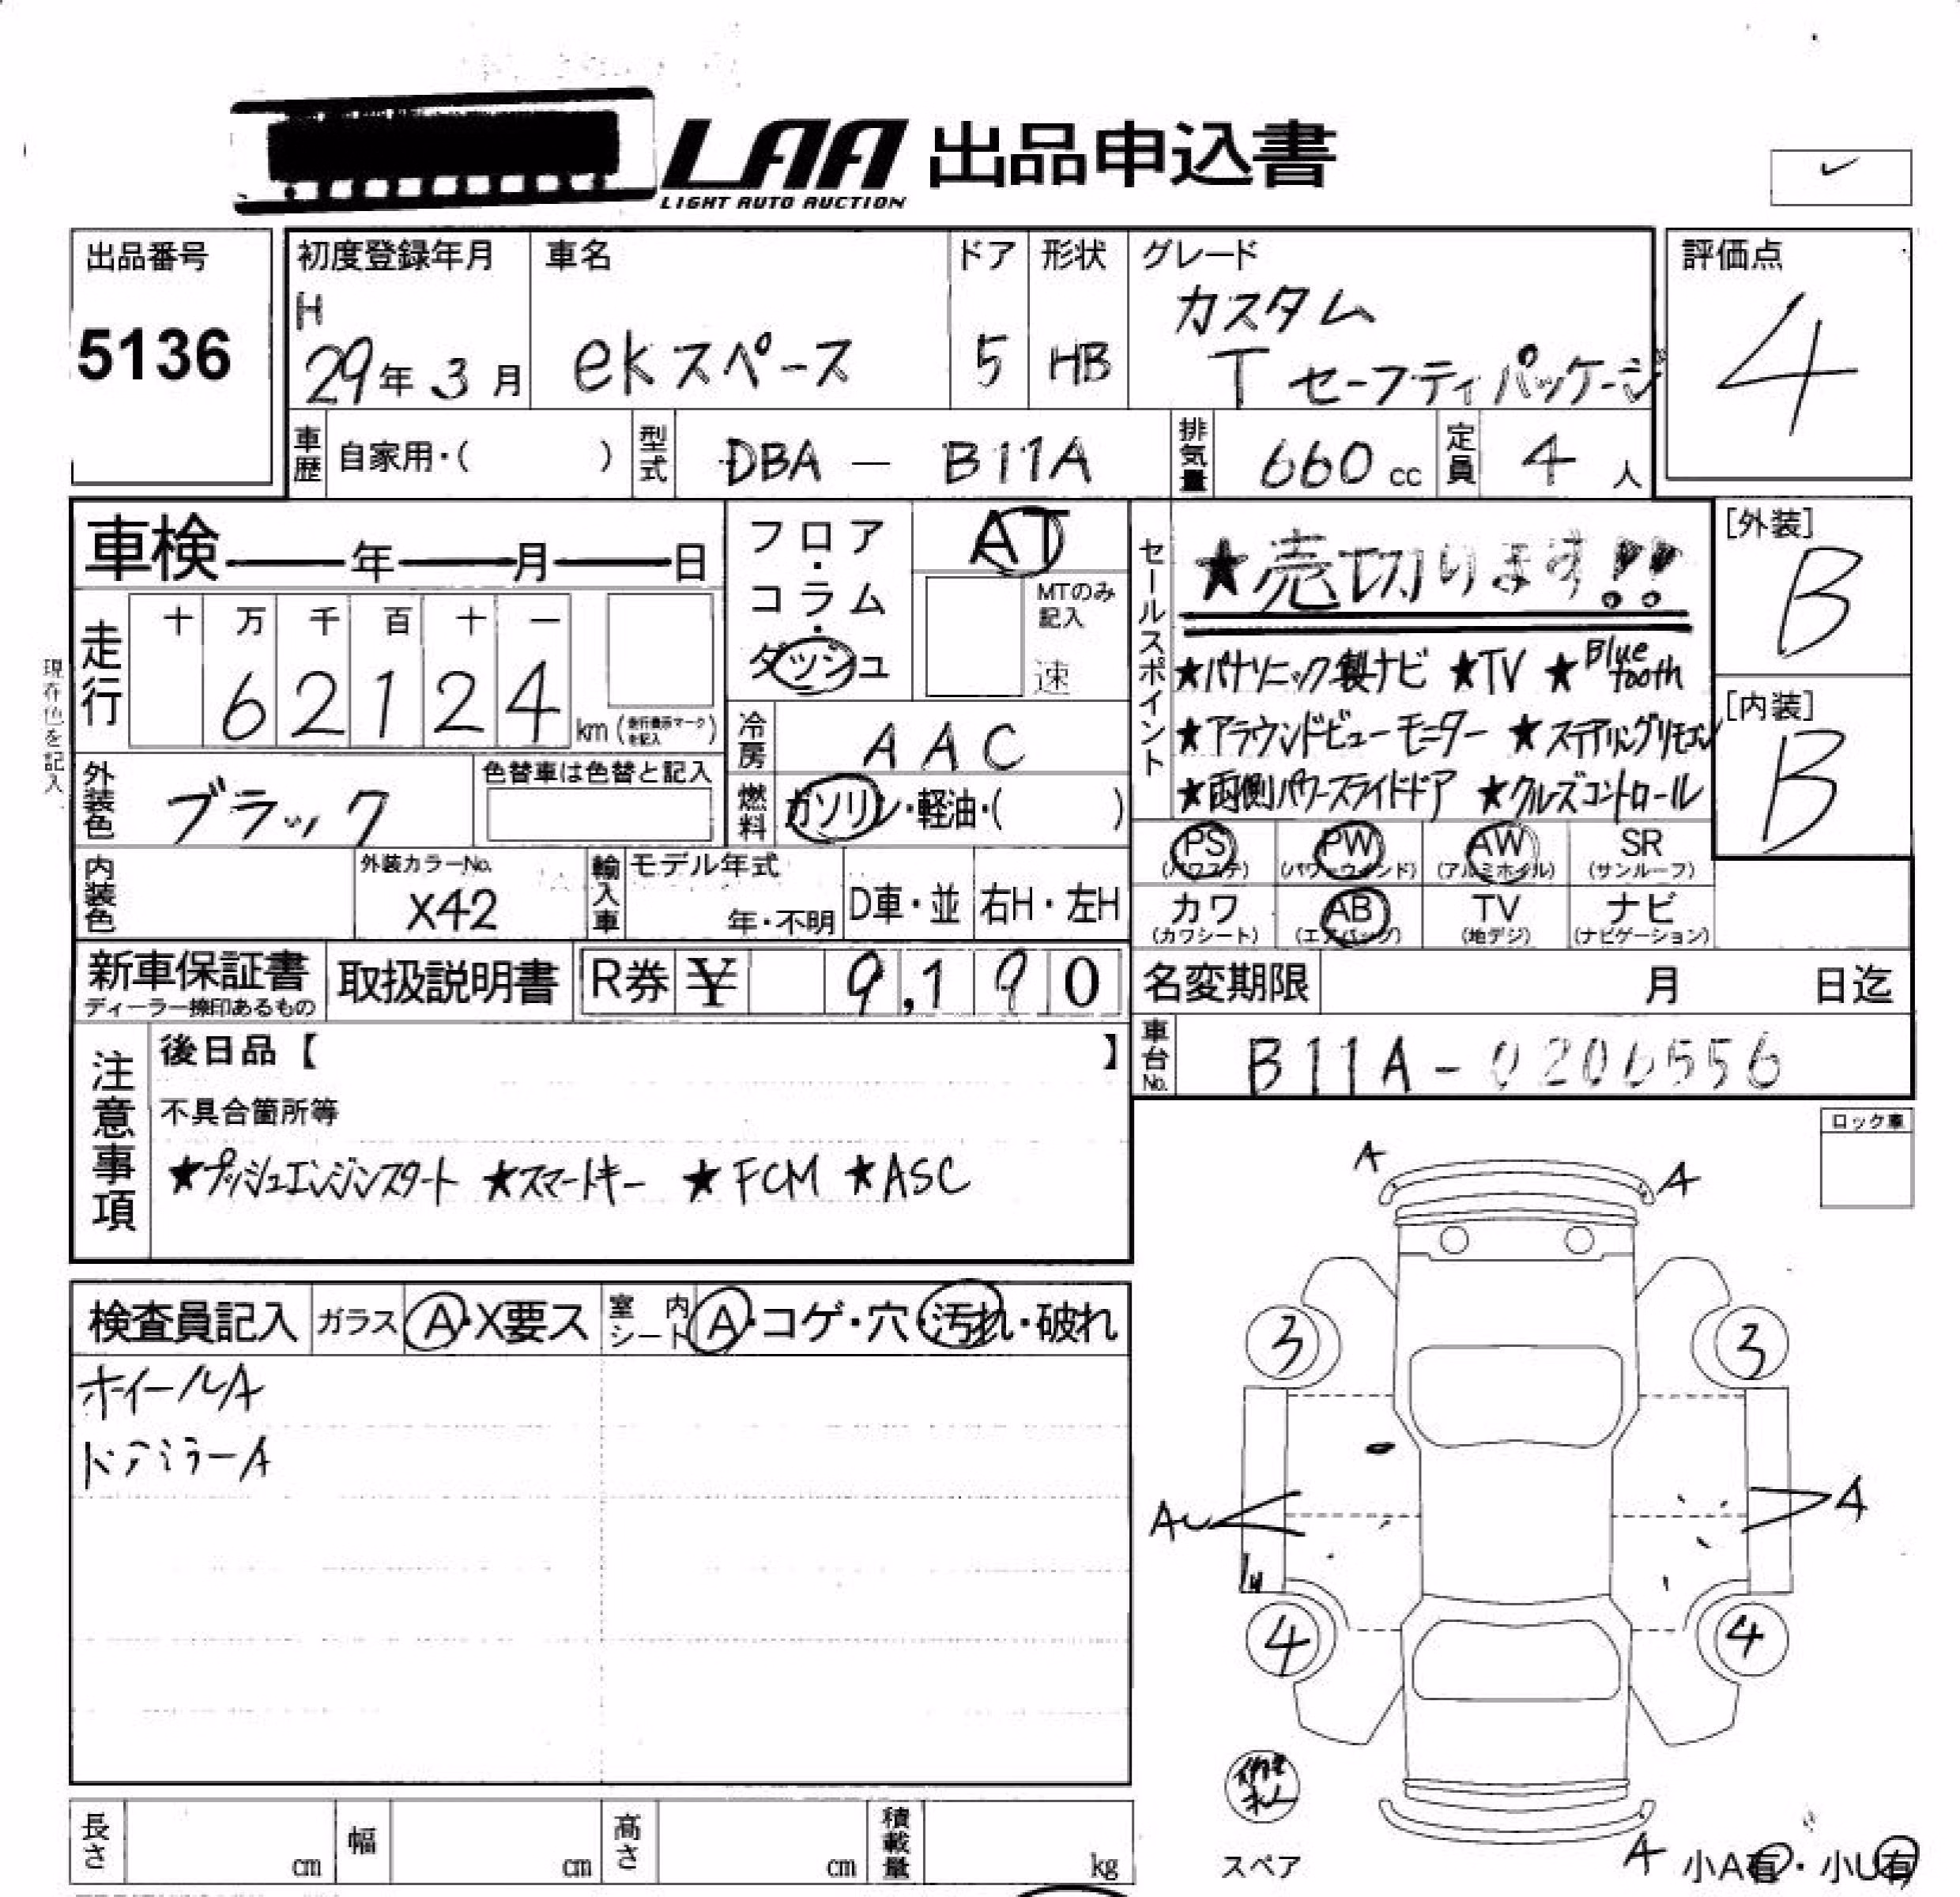 LAA 出品申込書
LIGHT AUTO AUCTION
出品番号
5136
初度登録年月
H
29年 3月
車名
ekスペース
ドア
5
形状
HB
グレード
カスタム
T セーフティパッケージ
評価点
4
車歴 自家用・( )
型式 DBA — B11A
排気量 660 cc
定員 4 人
車検 年 月 日
フロア・コラム・ダッシュ
AT
MTのみ記入
速
セールスポイント
★売切ります!!
★パナソニック製ナビ ★TV ★Bluetooth
★アラウンドビューモニター ★ステアリングリモコン
★両側パワースライドドア ★クルーズコントロール
[外装]
B
[内装]
B
現在色を記入
走行
十 万 千 百 十 一
6 2 1 2 4 km (走行表示マークを記入)
冷房 AAC
外装色 ブラック
色替車は色替と記入
燃料 ガソリン・軽油・( )
PS (パワステ) PW (パワーウインド) AW (アルミホイル) SR (サンルーフ)
カワ (カワシート) AB (エアバッグ) TV (地デジ) ナビ (ナビゲーション)
内装色
外装カラーNo.
X42
輸入車 モデル年式
年・不明
D車・並 右H・左H
新車保証書
ディーラー捺印あるもの
取扱説明書
R券 ¥ 9,190
名変期限 月 日迄
車台No. B11A-0206556
注意事項
後日品【 】
不具合箇所等
★プッシュエンジンスタート ★スマートキー ★FCM ★ASC
ロック車
A
A
検査員記入 ガラス A・X要ス 室内シート A・コゲ・穴・汚れ・破れ
ホイールA
ドアミラーA
3
3
A
4
4
スペア
A 小A有・小U有
長さ cm 幅 cm 高さ cm 積載量 kg